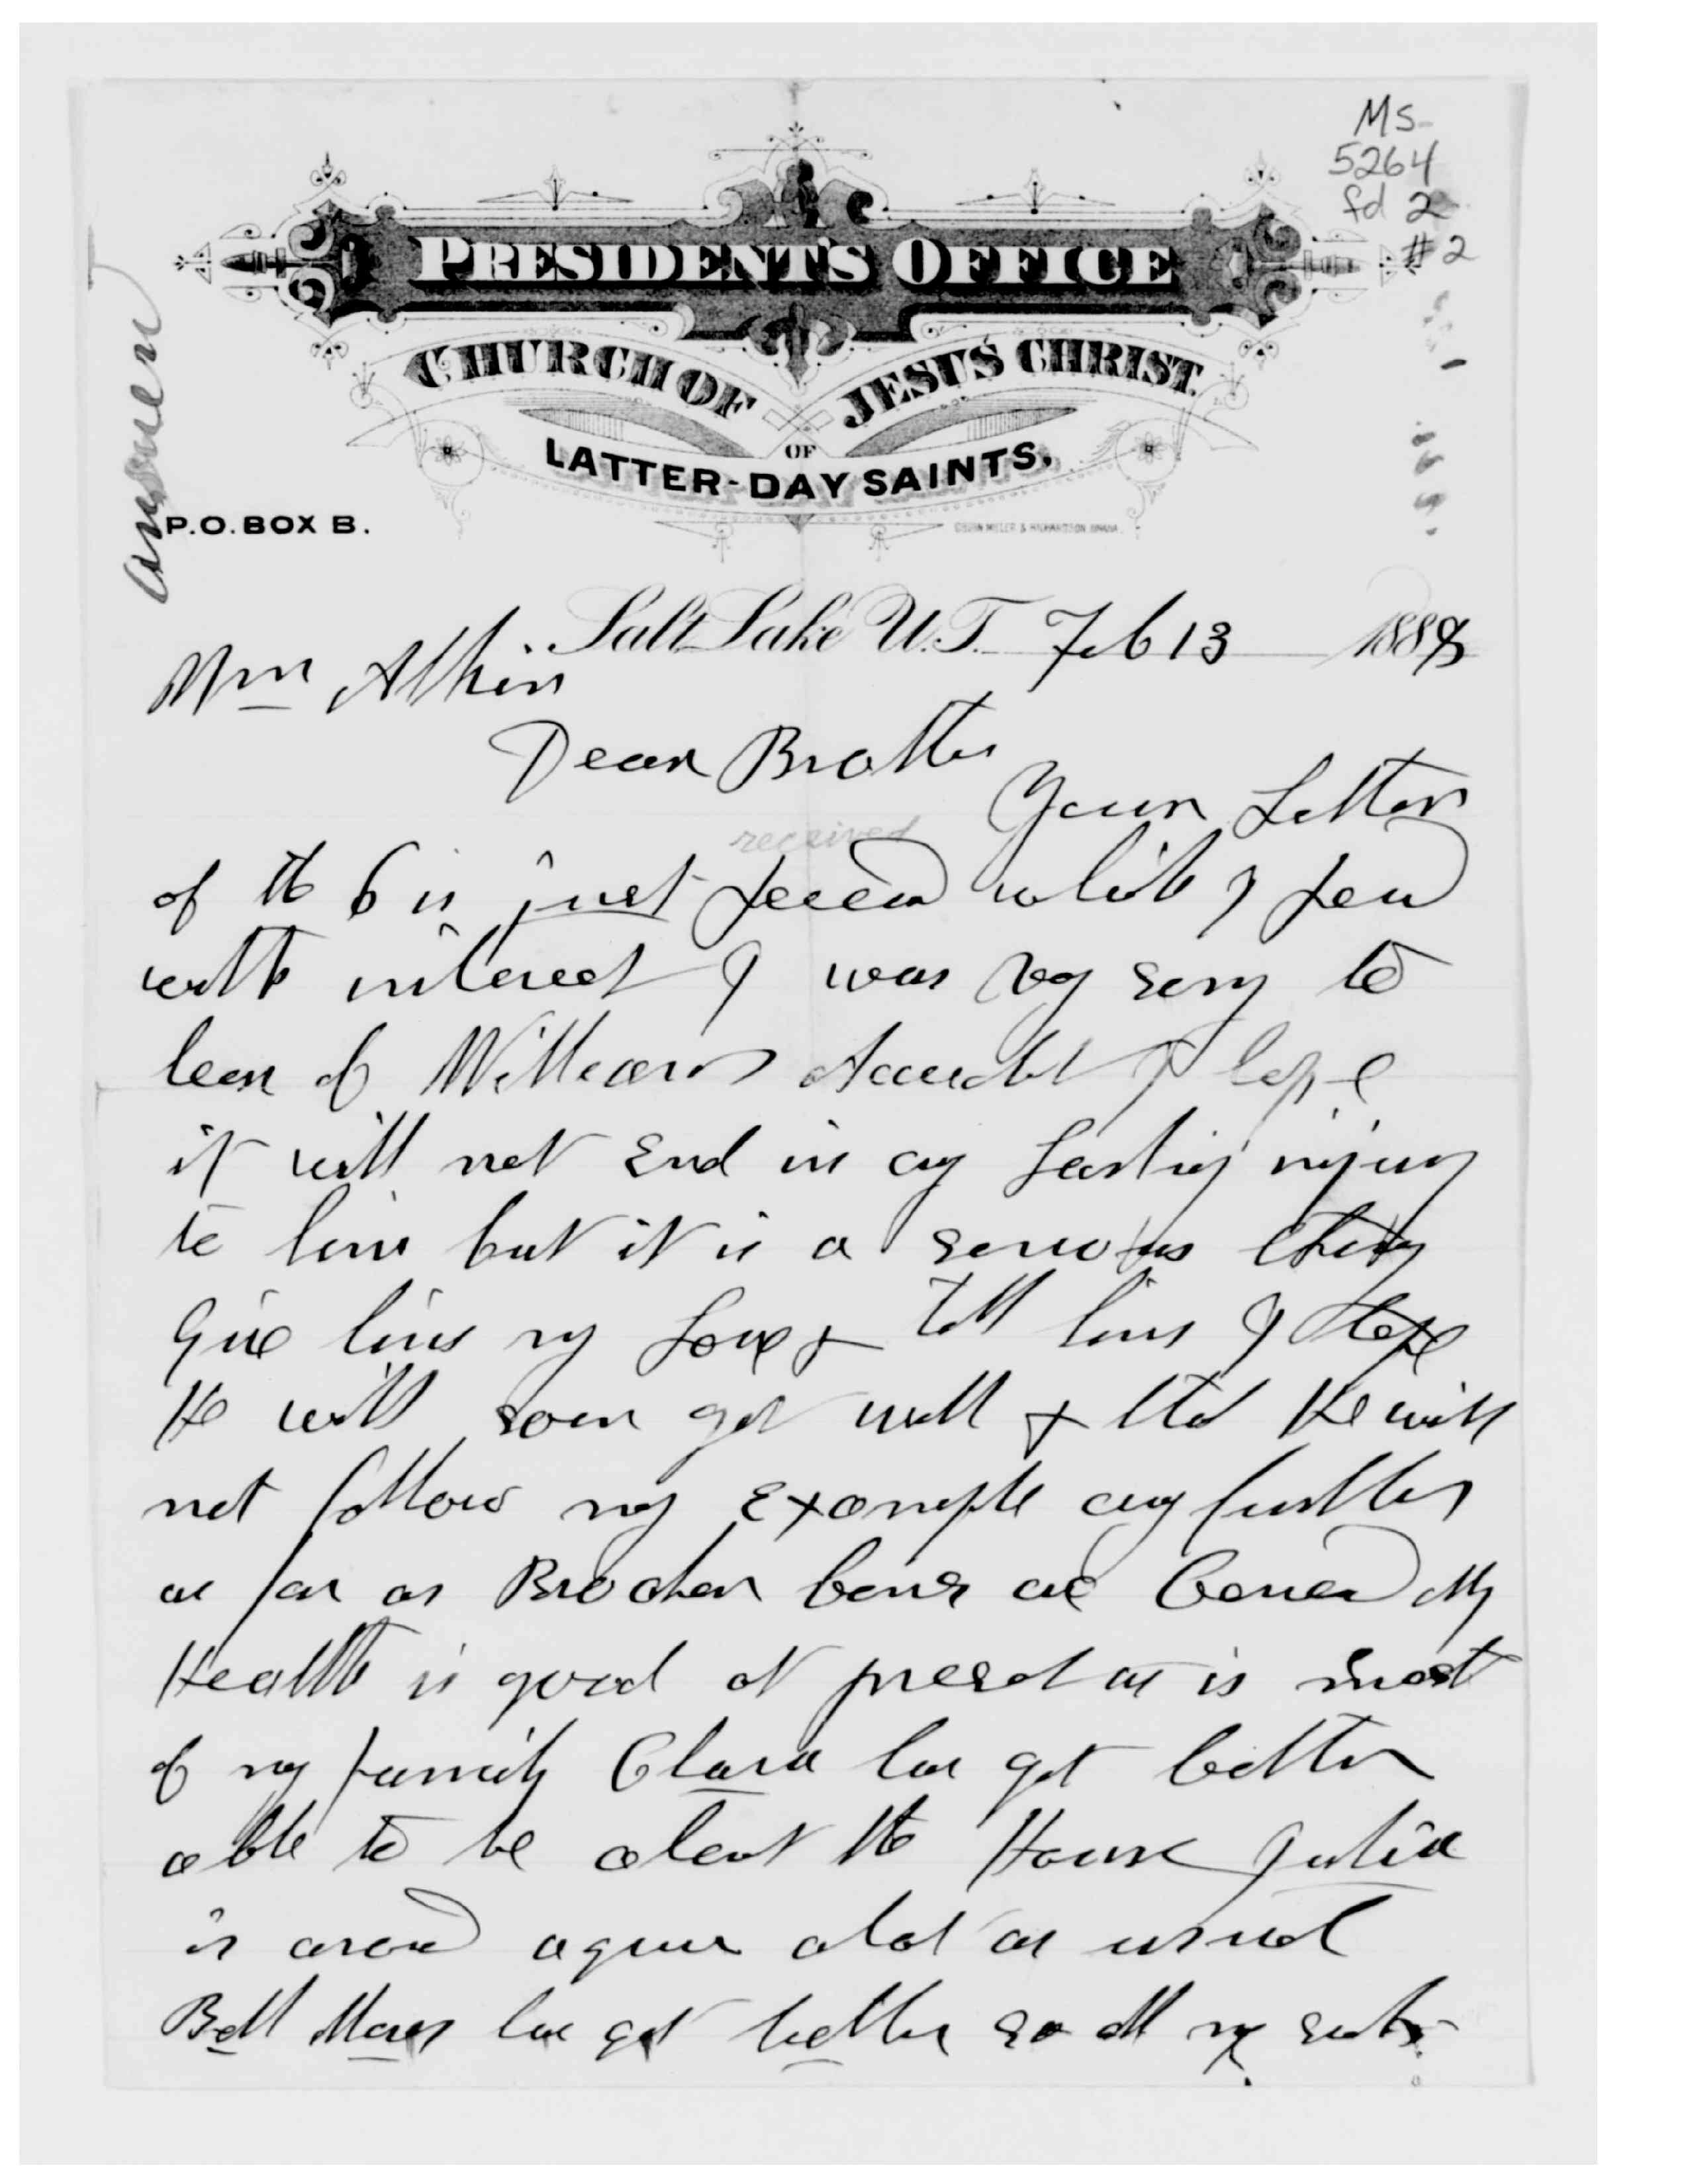 MS
5264
fd 2
#2
PRESIDENT'S OFFICE
CHURCH OF JESUS CHRIST
OF
LATTER-DAY SAINTS.
P.O. BOX B.
answered
Salt Lake U.T. Feb 13 1888
Wm Atkin
Dear Brother
Your Letter
received
of the 6 is just received which I read
with interest I was very sorry to
learn of Williams Accident I hope
it will not End in any Lasting injury
to him but it is a serious thing
Give him my Love & tell him I Hope
He will soon get well & that He will
not follow my Example any further
as far as Broken bones are concerned My
Health is good at present as is most
of my family Clara has got better
able to be about the House Julia
is around again about as usual
Bell Moses has got better so all my